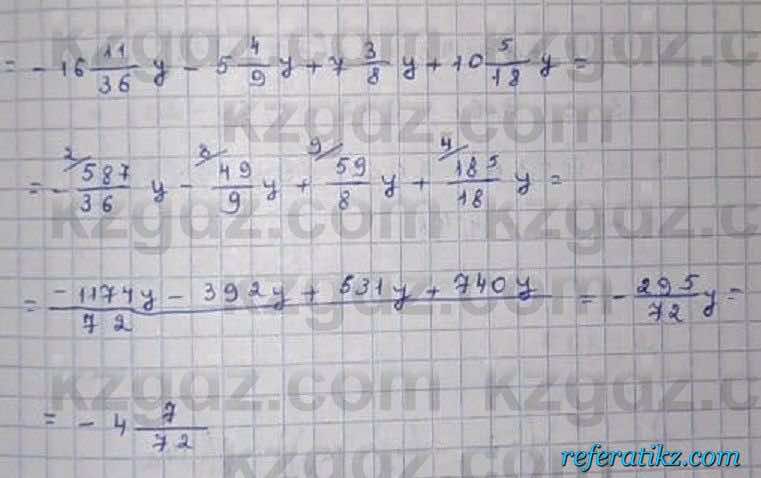 = - 16 11/36 y - 5 4/9 y + 7 3/8 y + 10 5/18 y =
= - 2/ 587/36 y - 8/ 49/9 y + 9/ 59/8 y + 4/ 185/18 y =
= -1174y - 392y + 531y + 740y / 72 = - 295/72 y =
= - 4 7/72
kzgdz.com
referatikz.com